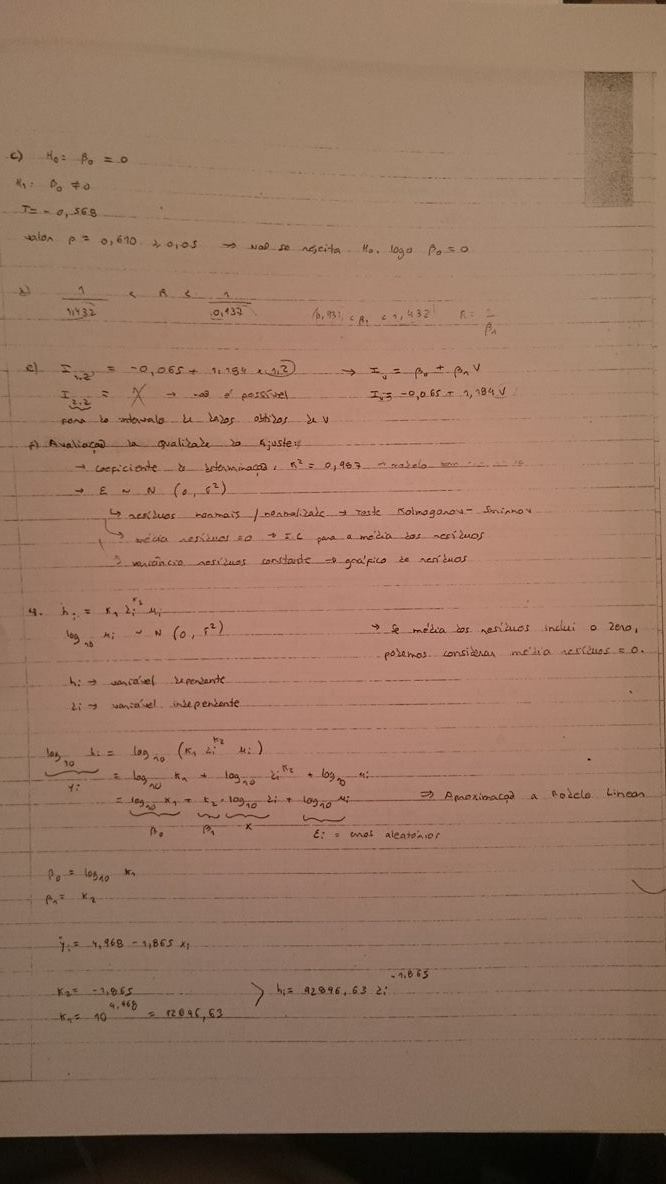 c) H₀: β₀ = 0
H₁: β₀ ≠ 0
T = - 0,568
valor p = 0,610 ≥ 0,05 → não se rejeita H₀, logo β₀ = 0
d) 1/1,432 < R < 1/0,937 0,937 < β₁ < 1,432 R = 1/β₁
e) I₁,₂ = -0,065 + 1,184 × 1,2 → Iᵥ = β₀ + β₁ V
I₂,₂ = X → não é possível Iᵥ = -0,065 + 1,184 V
fora do intervalo de dados obtidos de V
f) Avaliação da qualidade do Ajuste:
→ coeficiente de determinação, R² = 0,987 → modelo
→ E ~ N (0, σ²)
↳ resíduos normais / normalidade → teste Kolmogorov - Smirnov
↳ média resíduos = 0 → I.C para a média dos resíduos
↳ variância resíduos constante → gráfico de resíduos
4. hᵢ = k₁ zᵢ^k₂ uᵢ
log₁₀ uᵢ ~ N (0, σ²) → Se média dos resíduos inclui o zero,
podemos considerar média resíduos = 0.
hᵢ → variável dependente
zᵢ → variável independente
log₁₀ hᵢ = log₁₀ (k₁ zᵢ^k₂ uᵢ)
yᵢ = log₁₀ k₁ + log₁₀ zᵢ^k₂ + log₁₀ uᵢ
= log₁₀ k₁ + k₂ · log₁₀ zᵢ + log₁₀ uᵢ ⇒ Aproximação a Modelo Linear
β₀ β₁ x Eᵢ = erros aleatórios
β₀ = log₁₀ k₁
β₁ = k₂
ŷᵢ = 4,968 - 1,865 xᵢ
k₂ = -1,865 > hᵢ = 92896,63 zᵢ^-1,865
k₁ = 10^4,968 = 92896,63